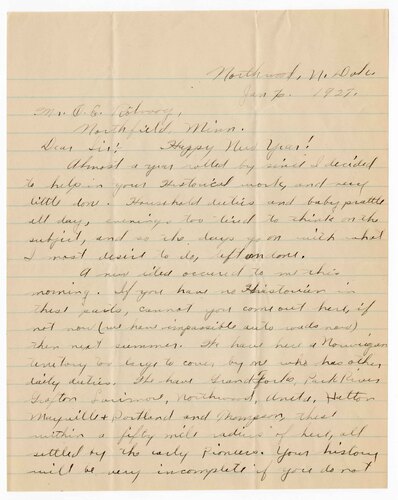 Northwood, N. Dak.
Jan 6. 1927.
Mr. O. E. Rolvaag,
Northfield, Minn.
Dear Sir! Happy New Year!
Almost a year rolled by since I decided
to help in your Historical work, and very
little done. Household duties and baby prattle
all day, evenings too tired to think on the
subject, and so the days go on with what
I most desire to do, left undone.
A new idea occured to me this
morning. If you have no Historian in
these parts, cannot you come out here, if
not now (we have impossible auto roads now)
then next summer. We have here a Norwegian
territory too days to cover by me who has other
daily duties. We have Grand Forks, Park River
Grafton Larimore, Northwood, Aneta, Hatton
Mayville & Portland and Thompson, these
within a fifty mile radius of here, all
settled by the early Pioneers. Your history
will be very incomplete if you do not